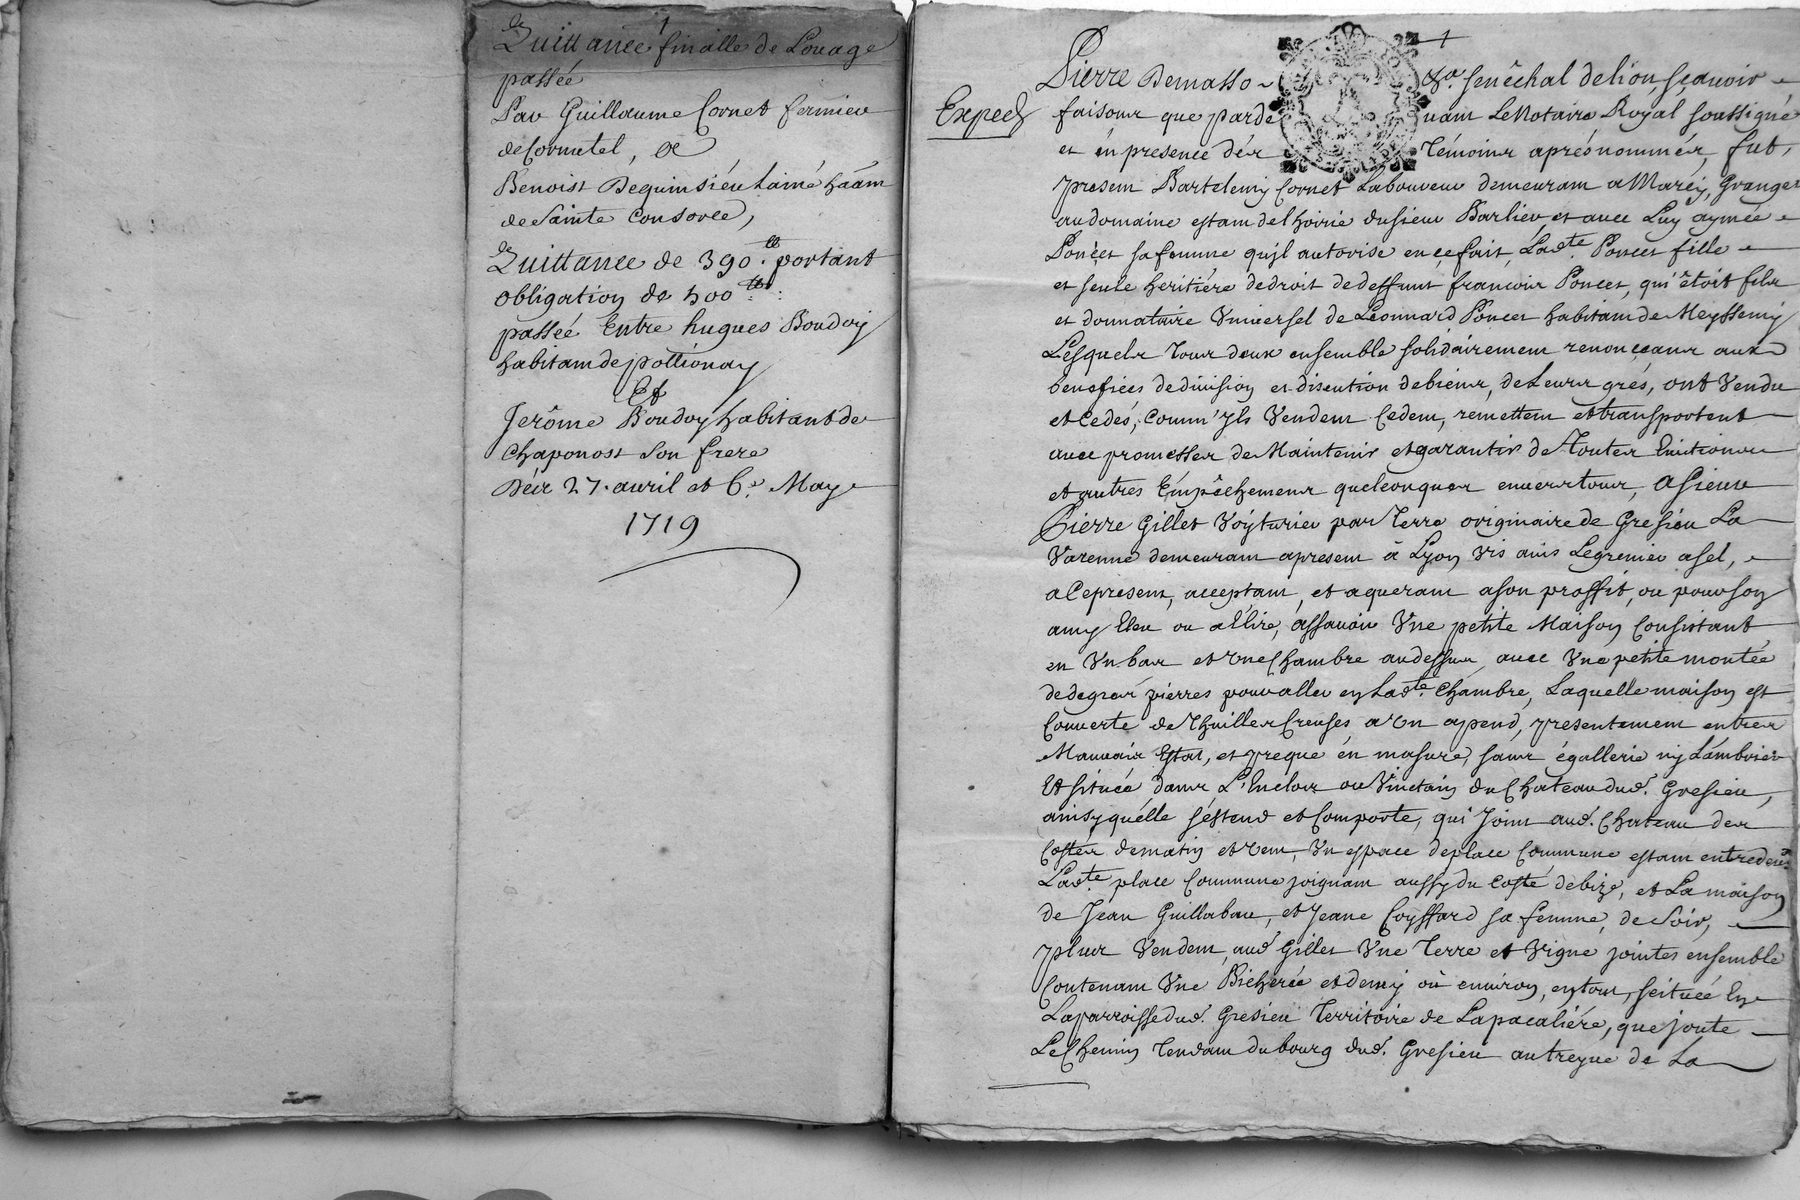 Quittance finalle de Louage
passée
Par Guillaume Cornet fermier
de Cornetel, &
Benoist Dequinsieu laîné háám
de Sainte Consorce,
Quittance de 390.tt portant
obligation de 500 tt:
passée Entre hugues Boudoy
habitam de pollionay
Et
Jerôme Boudoy habitant de
Chaponost Son frere
Déir 27. avril et 6.e May
1719
1
Pierre Demasso ~ &a. senêchal de lion, sçavoir
Exped
faisonr que parde vam Le Notaire Royal soussigné
et én presence dér Témoinr aprés nommér, fut,
presem Bartelemy Cornet Laboureur demeuram a Marcy, Granger
au domaine estam del hoirie du sieur Barlier et avec Luy aymée
Poncet sa femme qu'jl autorise en ce fait, Lad.te Poncet fille
et seule heritiére de droit de deffunt francoir Poncet, qui êtoit filz
et donnataire Vniversel de Léonnard Poncet habitam de Meyssemy
Lesquelz Tour deux ensemble solidairemem renonçeanr aux
benefices de division et discution de bienr, de Leurr gréz, ont Vendu
et Cedéz, Comm' Jlz Vendem Cedem, remettem et transportent
avec promesser de Maintenir et garantir de Touter Evictionr
et autres Empêchemenr quelconquer enverr tour, a sieur
Pierre Gillet Voyturier par Terre originaire de Gresieu La
Varenne demeuram a presem à Lyon vis avis Le grenier a sel,
a Ce presem, acceptam, et aqueram a son proffit, ou pour son
amy Eleu ou a Elire, assavoir Vne petite Maison Consistant
en Vn bar et vne Chambre au dessur avec Vne petite montée
de degréz pierres pour aller en Lad.te Chambre, Laquelle maison est
Couverte de Thuiller Creuses a vn apend, presentemem en trer
Mauvair Estat, et preque én masure, sanr égallerie ny Lambrier
Et située danr L'Enclor ou Vinctain du Chateau dud. Gresieu,
ainsy quélle séstend et Comporte, qui Joint aud. Chateau der
Coster de matin et vem, Vn espace de place Commune estam entre deux
Lad.te place Commune joignam aussy du Costé de bize, et La maison
de Jean Guillabau, et Jeane Coyffard sa femme, de Soir,
plur Vendem, aud Gillet Vne Terre et Vigne jointes ensemble
Contenam Vne Bicherée et demy où environ, en tour, scituée En
La parroisse dud. Gresieu Territoire de La pacaliére, que joute
Le Chemin Tendam du bourg dud. Gresieu au treyve de La